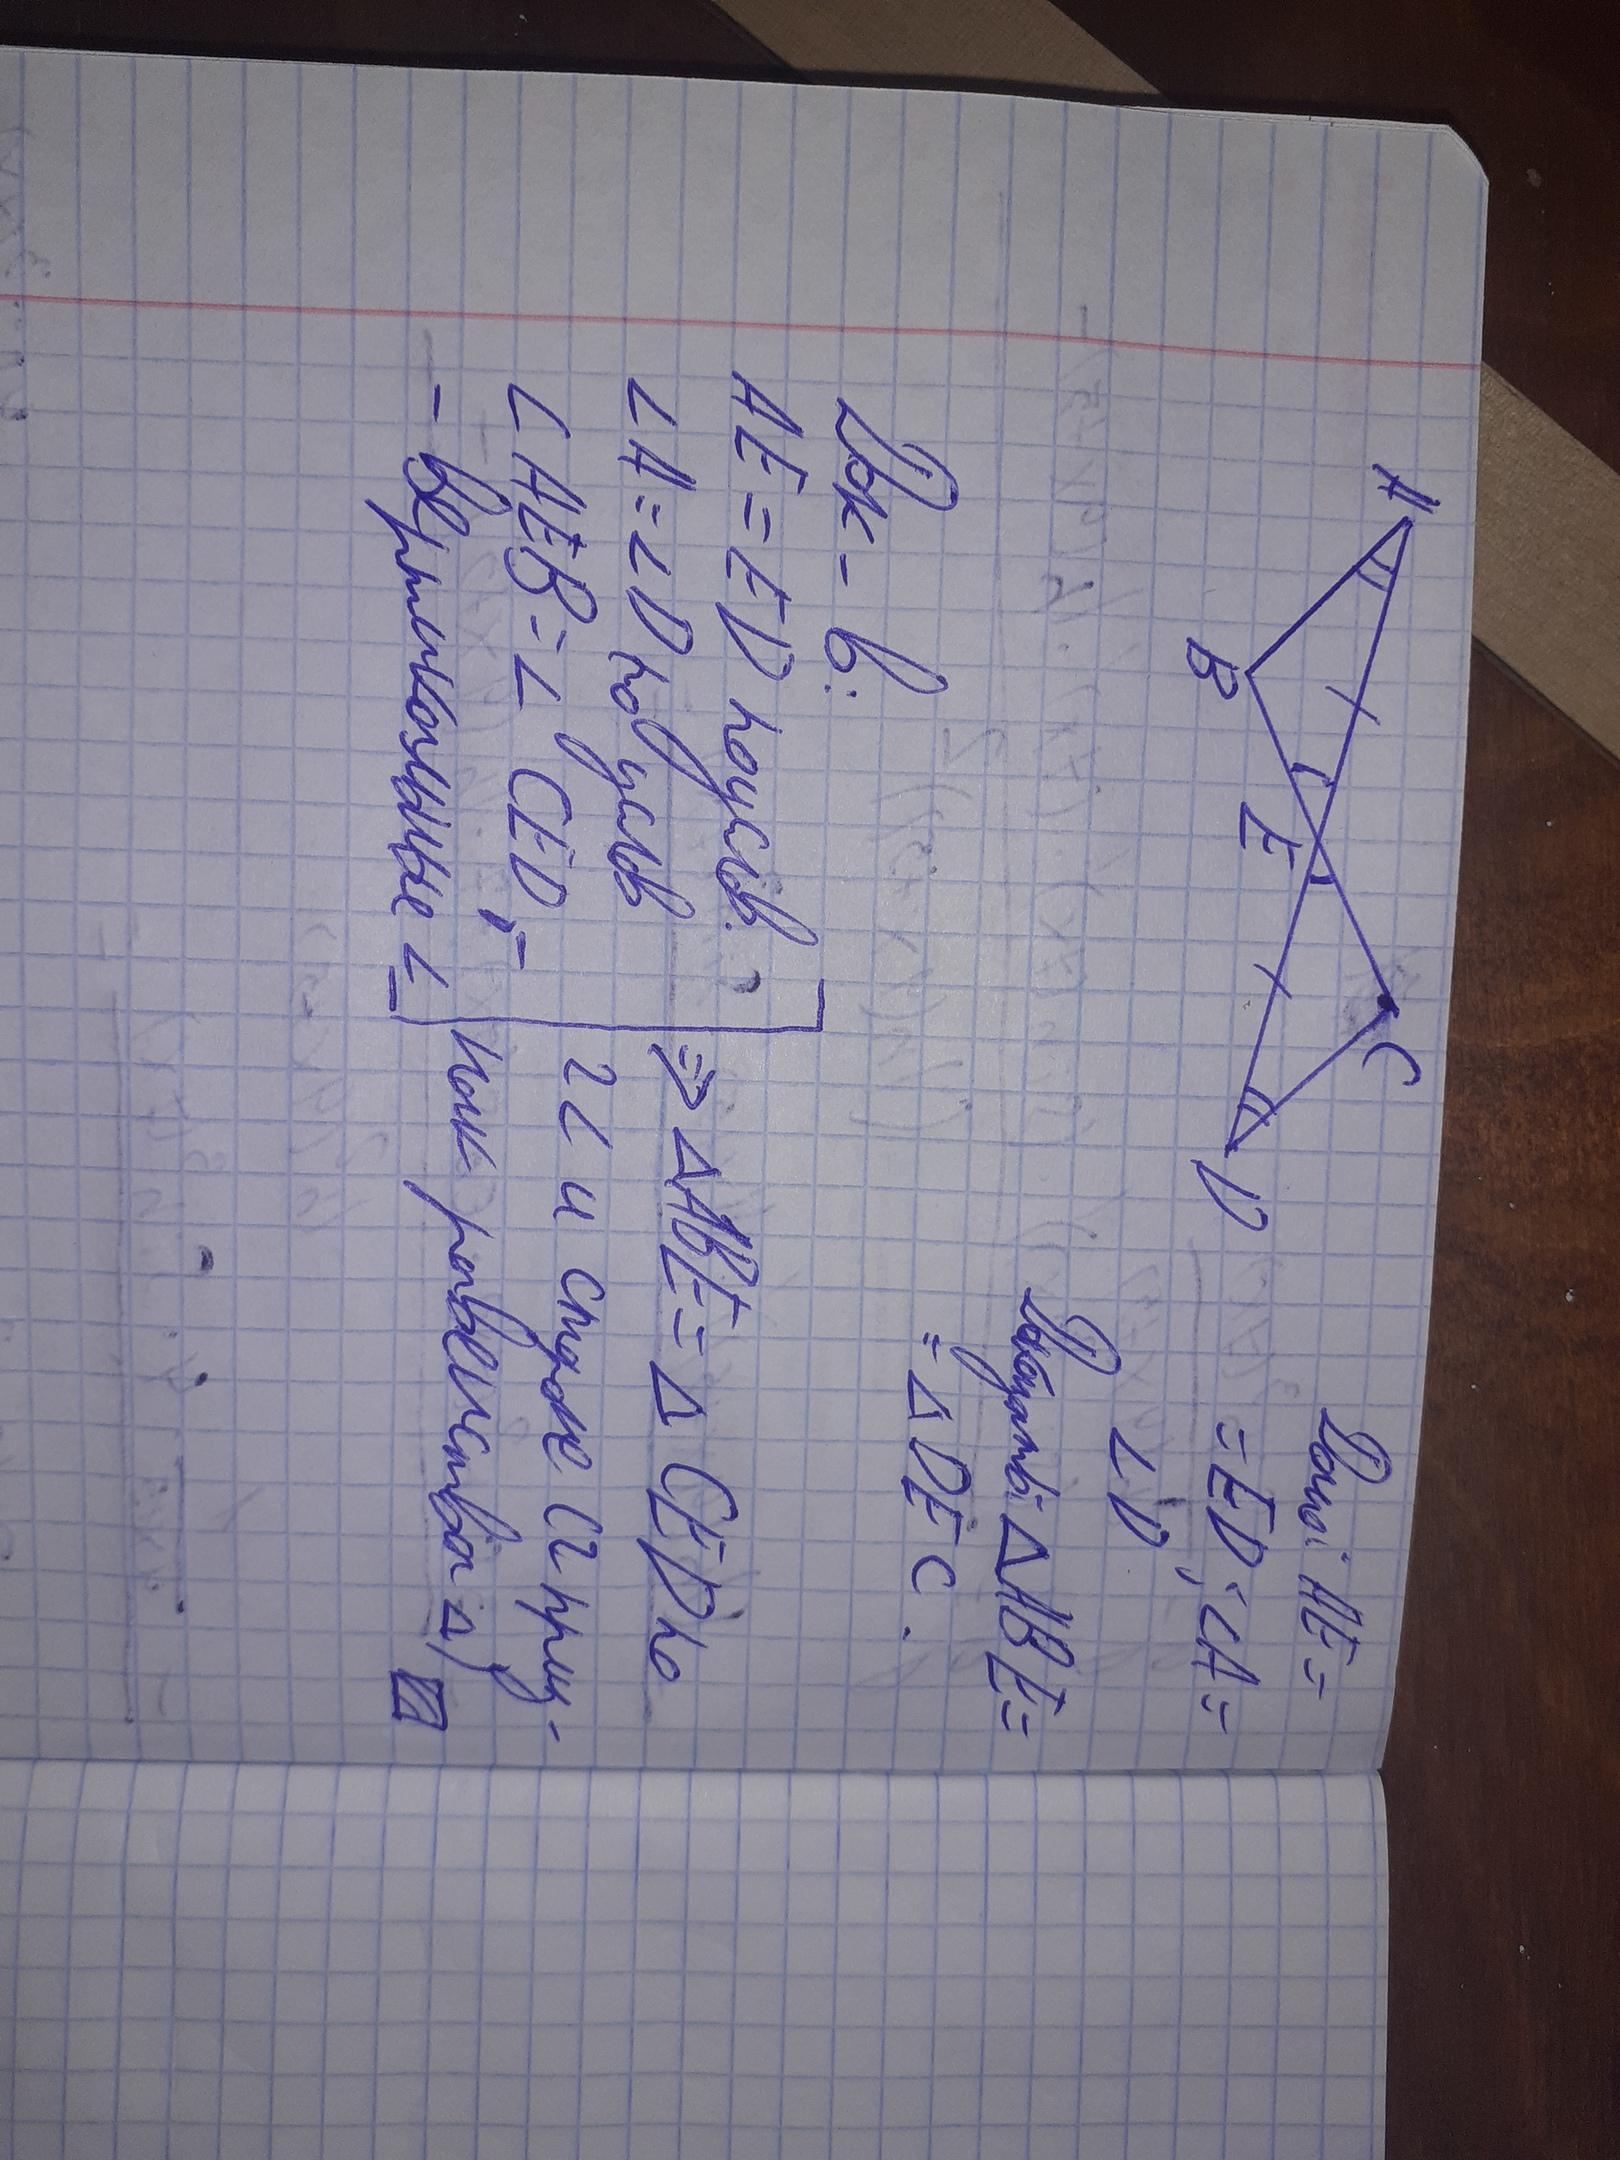 A
B
E
C
D
Дано: AE =
= ED; ∠A =
∠D
Доказать: Δ ABE =
= Δ DEC.
Док - в:
AE = ED по услв.
∠A = ∠D по услв
∠ AEB = ∠ CED, -
- вертикальные ∠
=> Δ ABE = Δ CED по
2∠ и стороне (2 приз-
нак равенства Δ)